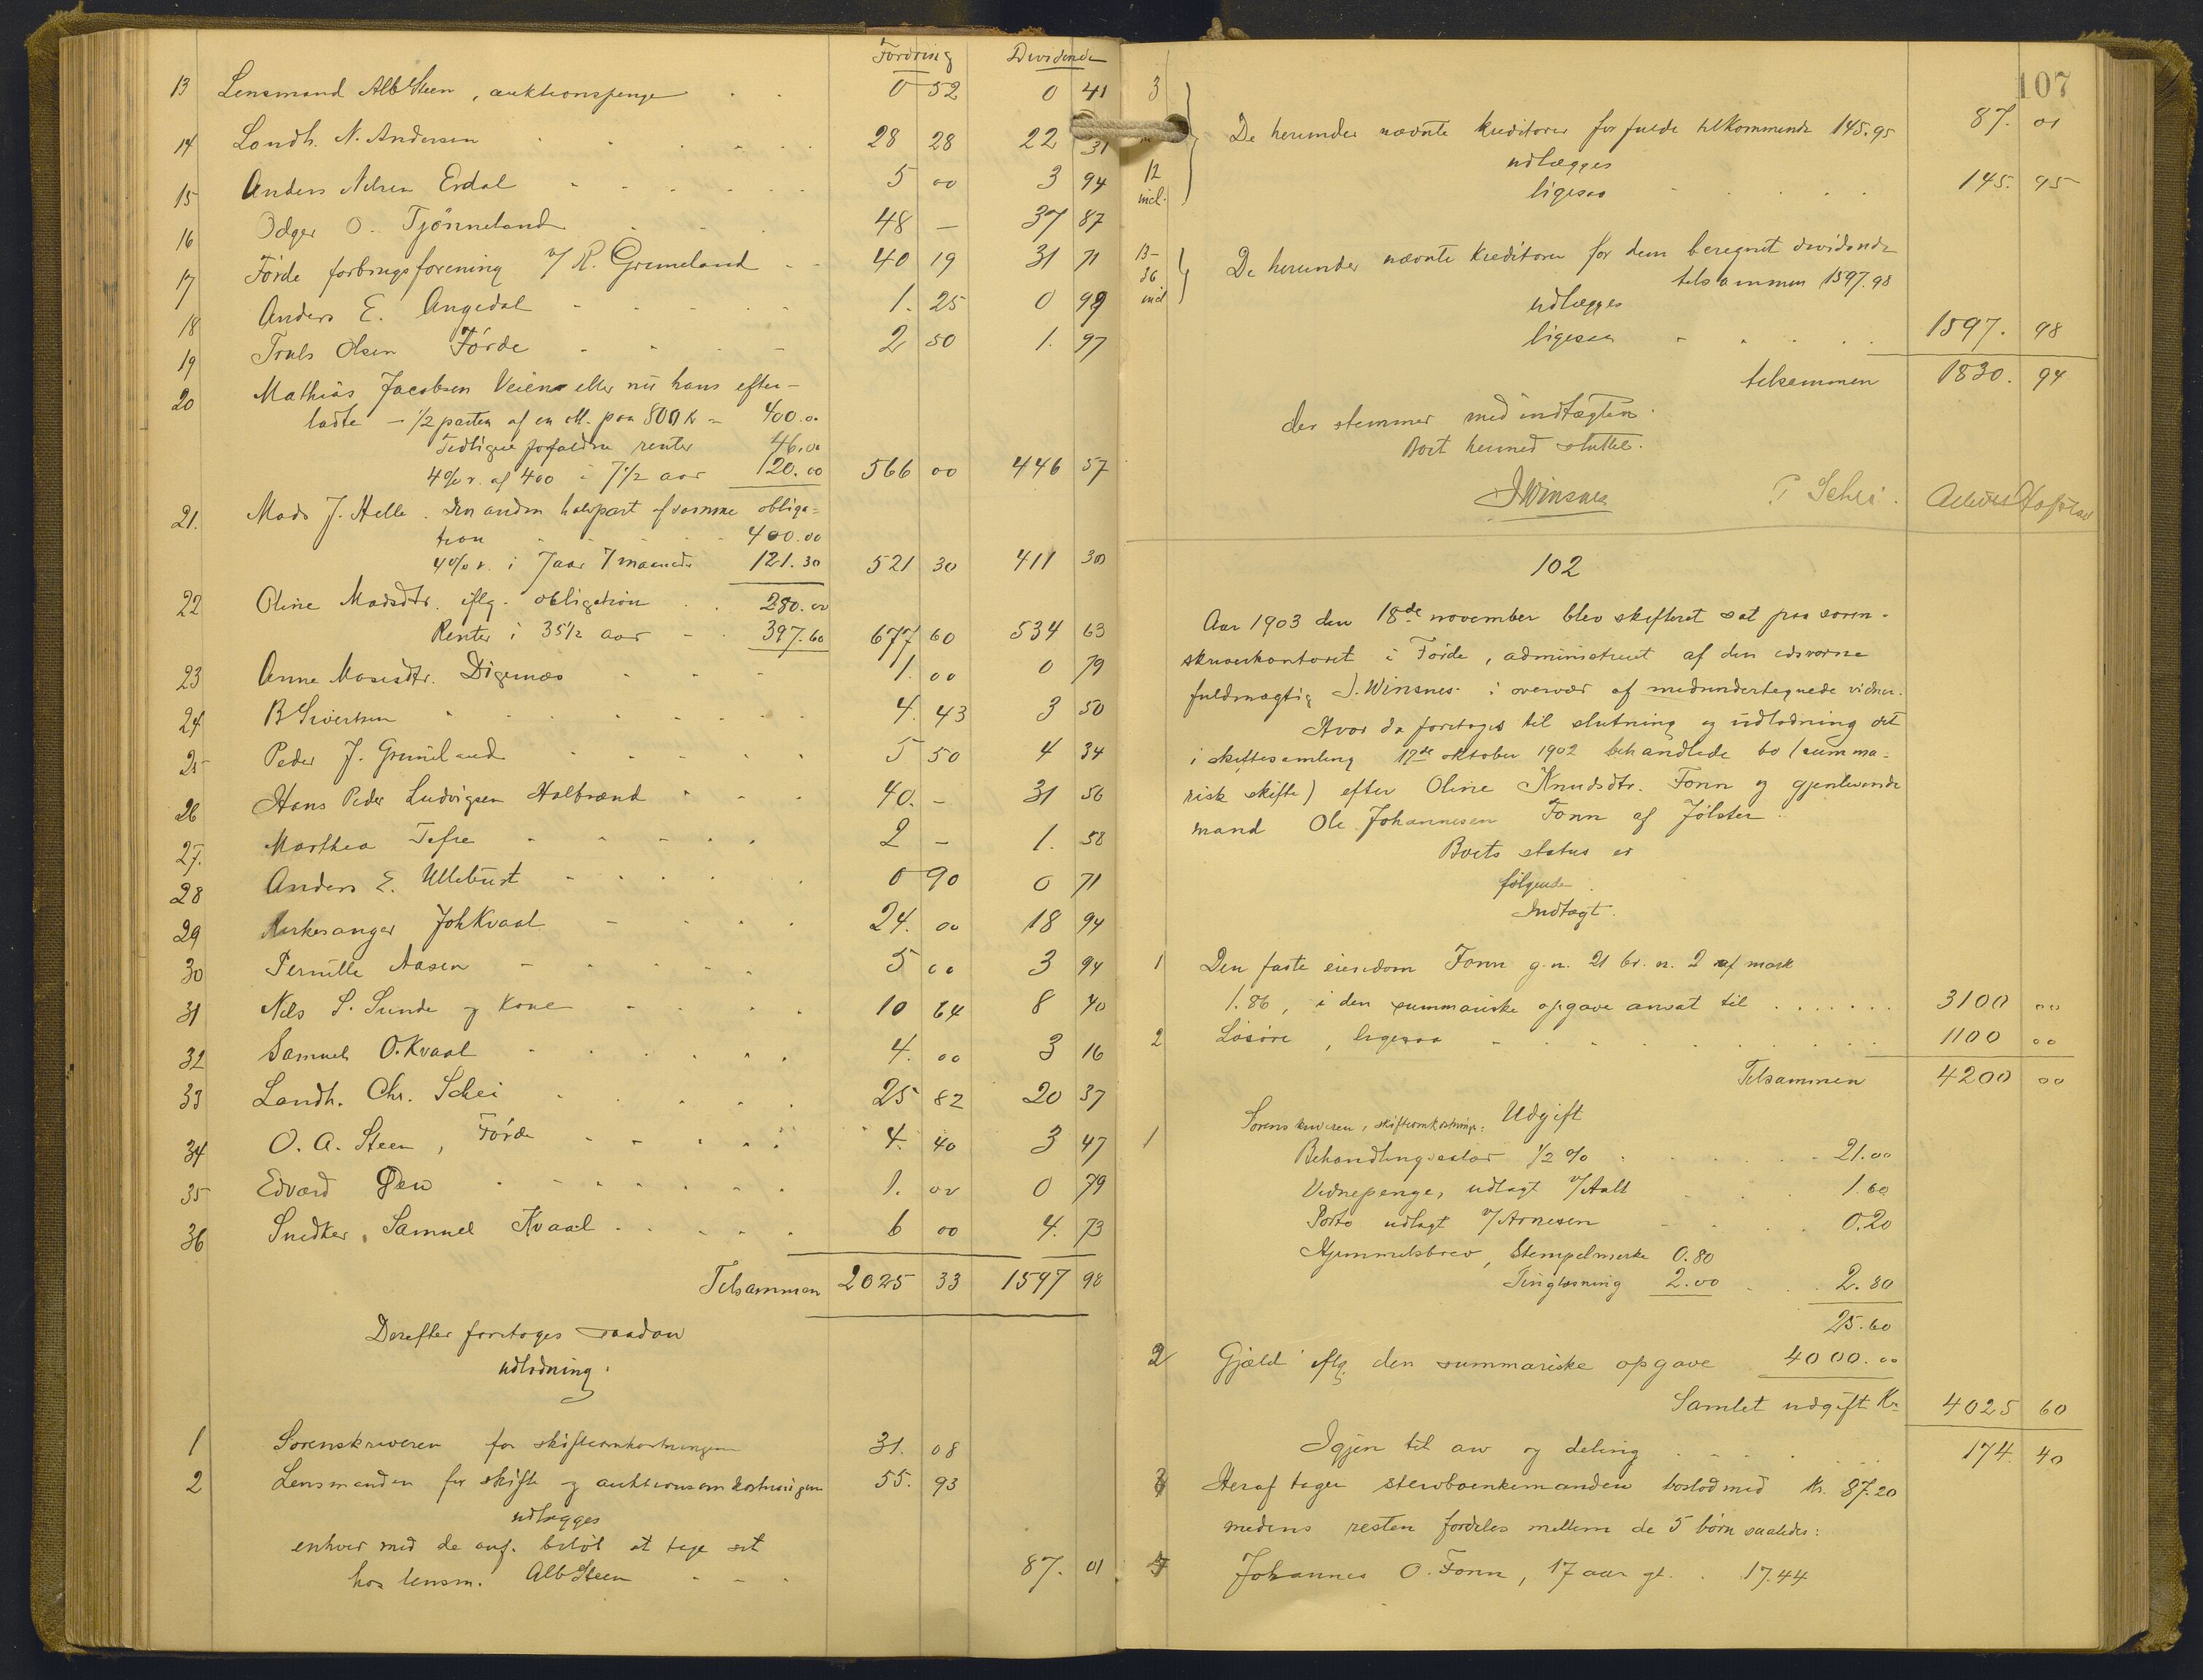 Fordring Dividende
13 Lensmand Alb Steen, auktionspenge . . 0 52 0 41
14 Landh. N. Andersen 28 28 22 31
15 Anders Nilsen Erdal 5 00 3 94
16 Odger O. Tjønneland 48 — 37 87
17 Førde forbrugsforening v/ R. Grimeland 40 19 31 71
18 Anders E. Angedal 1. 25 0 99
19 Truls Olsen Førde 2 50 1. 97
20 Mathias Jacobsen Veien eller nu hans efter-
ladte — 1/2 parten af en obl. paa 800 kr = 400.00
Tidligere forfaldne renter 46.00
4% r. af 400 i 7 1/2 aar 120.00 566 00 446 57
21. Mads J. Helle. Den anden halvpart af samme obliga=
tion 400.00
4% r. i 7 aar 7 maaneder 121.30 521 30 411 30
22 Oline Madsdtr. iflg. obligation . . 280.00
Renter i 35 1/2 aar - 397.60 677 60 534 63
23 Anne Mosesdtr. Digernæs 1. 00 0 79
24 B Sivertsen 4. 43 3 50
25 Peder J. Grimeland 5 50 4 34
26 Hans Peder Ludvigsen Halbrend 40. - 31 56
27. Marthea Tefre 2 — 1. 58
28 Anders E. Ullebust 0 90 0 71
29 Kirkesanger Joh Kvaal 24. 00 18 94
30 Pernille Aasen 5 00 3 94
31 Nils S. Sunde og kone 10 64 8 40
32 Samuel O. Kvaal 4. 00 3 16
33 Landh. Chr. Schei 25 82 20 37
34 O. A. Steen, Førde 4. 40 3 47
35 Edvard Øen 1. 00 0 79
36 Snedker Samuel Kvaal 6 00 4. 73
Tilsammen 2025 33 1597 98
Derefter foretoges saadan
udlodning.
1 Sorenskriveren for skifteomkostningen 31. 08
2 Lensmanden for skifte og auktionsomkostningen 55. 93
udlægges
enhver med de anf. beløb at tage sit
hos lensm. Alb Steen 87. 01
107
87. 01
3
12
incl. De herunder nævnte kreditorer for fulde tilkommende 145.95
udlægges
ligesaa 145. 95
13-
36
incl De herunder nævnte kreditorer for dem beregnet dividende
tilsammen 1597.98
udlægges
ligesaa 1597. 98
tilsammen 1830. 94
der stemmer med indtægten.
Boet hermed sluttet.
J Winsnes P Schei.
102
Aar 1903 den 18de november blev skifteret sat paa soren-
skriverkontoret i Førde, administreret af den edsvorne
fuldmægtig J. Winsnes i overvær af medundertegnede vidner.
Hvor da foretoges til slutning og udlodning det
i skiftesamling 17de oktober 1902 behandlede bo (summa-
risk skifte) efter Oline Knudsdtr. Fonn og gjenlevende
mand Ole Johannesen Fonn af Jølster.
Boets status er
følgende
Indtægt.
1 Den faste eiendom Fonn g.n. 21 br. n. 2 af mark
1.86, i den summariske opgave ansat til . . . . . . 3100 00
2 Løsøre, ligesaa 1100 00
Tilsammen 4200 00
Udgift
1 Sorenskriveren, skifteomkostninge:
Behandlingssalær 1/2 % 21.00
Vidnepenge, udlagt v/ Aall 1.60
Porto udlagt v/ Arnesen 0.20
Hjemmelsbrev, Stempelmerke 0.80
Tinglæsning 2.00 . . 2.80
25.60
2 Gjæld iflg. den summariske opgave 4000.00
Samlet udgift Kr 4025 60
Igjen til arv og deling 174. 40
3 Heraf tager stervboenkemanden boslod med kr. 87.20
medens resten fordeles mellem de 5 børn saaledes:
4 Johannes O. Fonn, 17 aar gl. . 17.44